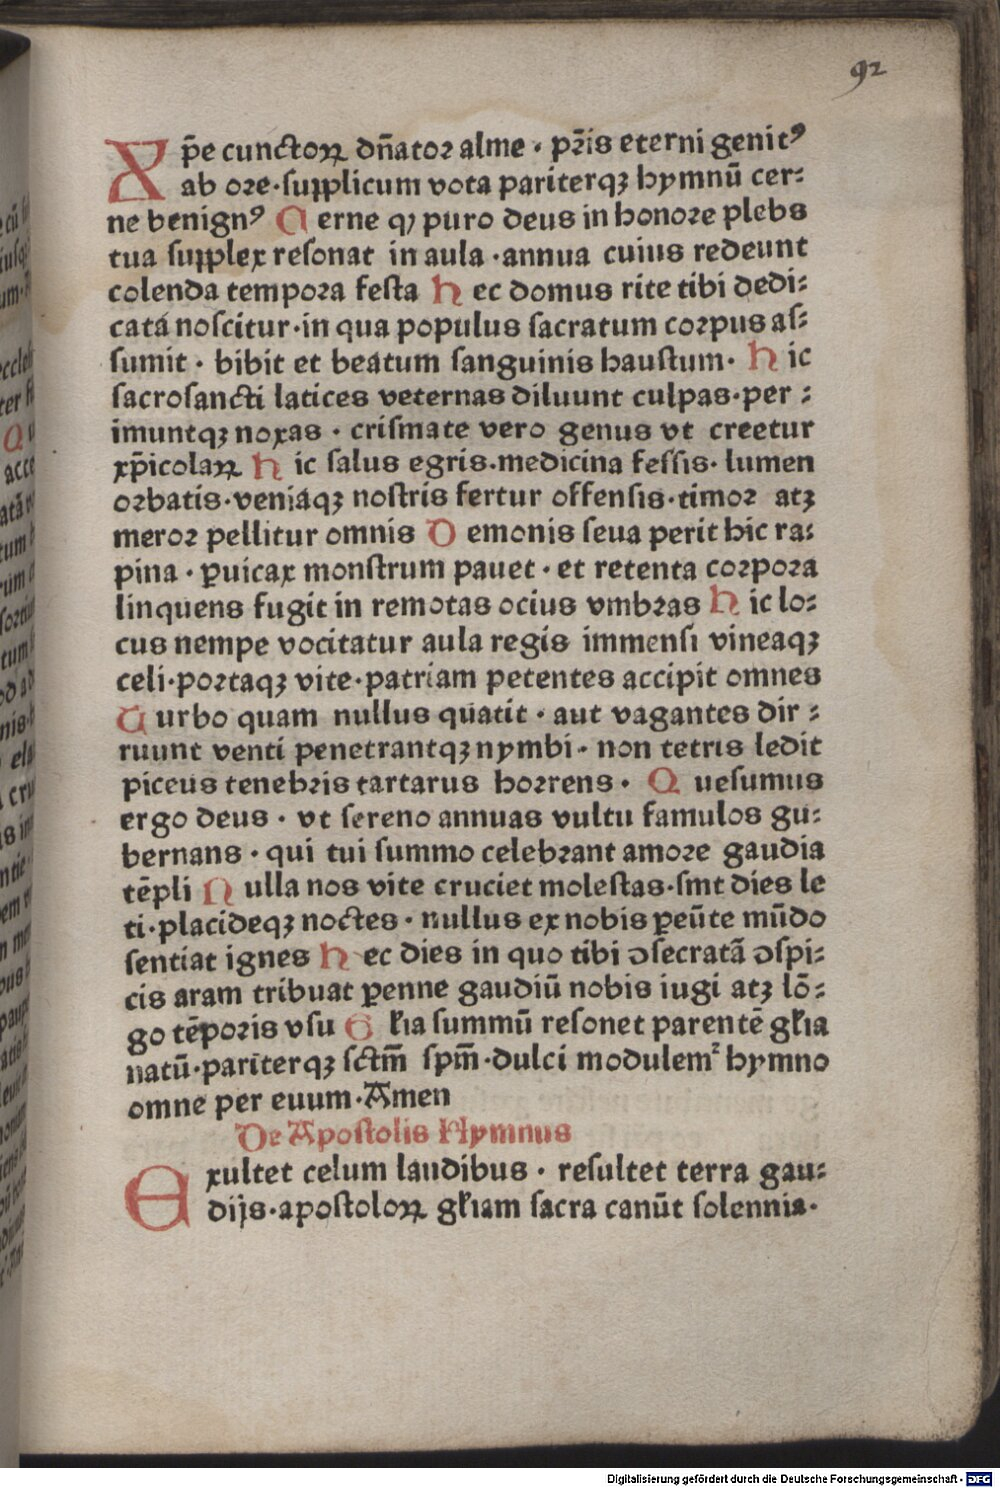 92
Xp̄e cunctoꝝ dn̄ator alme · pr̄is eterni genitꝰ
ab ore · supplicum vota pariterqꝫ hymnū cer⸗
ne benignꝰ Cerne qꝫ puro deus in honore plebs
tua supplex resonat in aula · annua cuius redeunt
colenda tempora festa Hec domus rite tibi dedi⸗
cata noscitur · in qua populus sacratum corpus as⸗
sumit · bibit et beatum sanguinis haustum · Hic
sacrosancti latices veternas diluunt culpas · per⸗
imuntqꝫ noxas · crismate vero genus vt creetur
xp̄icolaꝝ Hic salus egris · medicina fessis · lumen
orbatis · veniaqꝫ nostris fertur offensis · timor atꝫ
meror pellitur omnis Demonis seua perit hic ra⸗
pina · ꝑuicax monstrum pauet · et retenta corpora
linquens fugit in remotas ocius vmbras Hic lo⸗
cus nempe vocitatur aula regis immensi vineaqꝫ
celi · portaqꝫ vite · patriam petentes accipit omnes
Turbo quam nullus quatit · aut vagantes dir⸗
ruunt venti penetrantqꝫ nymbi · non tetris ledit
piceus tenebris tartarus horrens · Quesumus
ergo deus · vt sereno annuas vultu famulos gu⸗
bernans · qui tui summo celebrant amore gaudia
tēpli Nulla nos vite cruciet molestas · smt dies le
ti · placideqꝫ noctes · nullus ex nobis ꝑeūte mūdo
sentiat ignes Hec dies in quo tibi ↄsecratā ↄspi⸗
cis aram tribuat ꝑenne gaudiū nobis iugi atꝫ lō⸗
go tēporis vsu Gl̄ia summū resonet parentē gl̄ia
natū · pariterqꝫ sctm̄ spm̄ · dulci modulem᷑ hymno
omne per euum · Amen
De Apostolis Hymnus
Exultet celum laudibus · resultet terra gau⸗
dijs · apostoloꝝ gl̄iam sacra canūt solennia ·
Digitalisierung gefördert durch die Deutsche Forschungsgemeinschaft - DFG